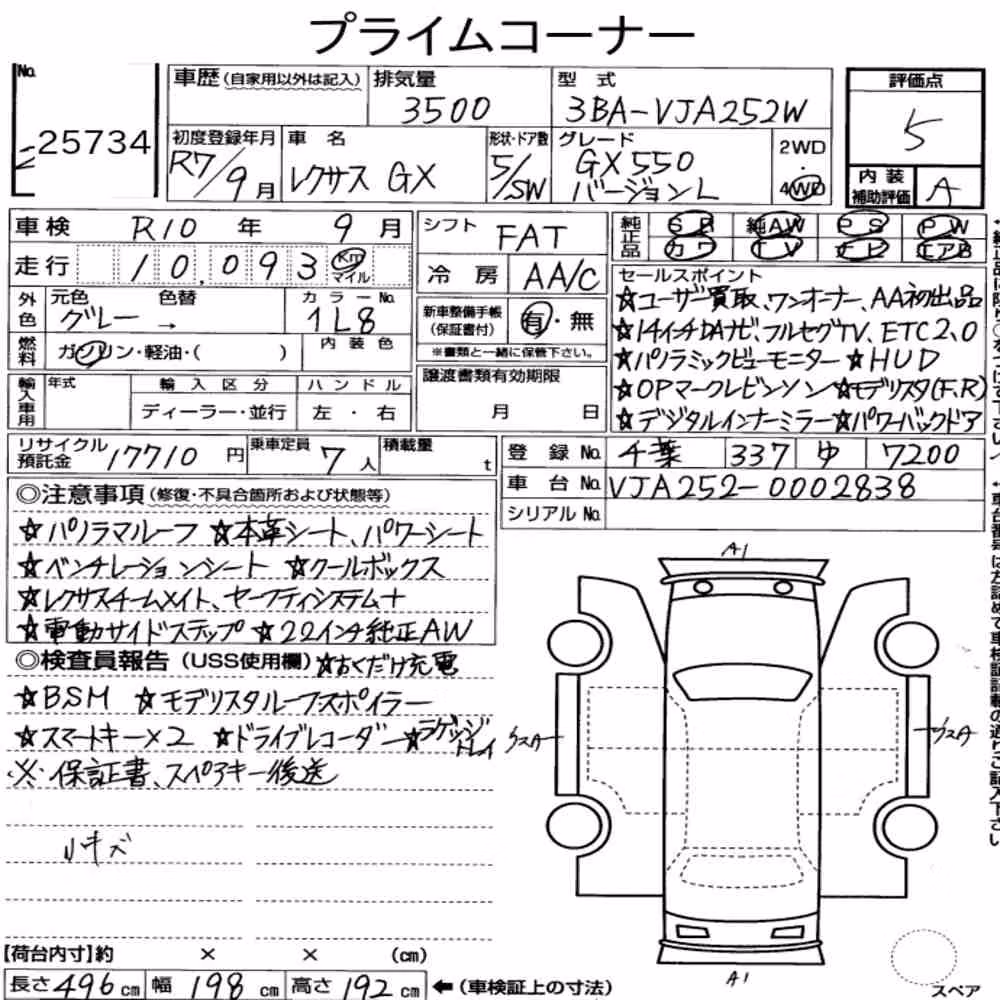 プライムコーナー
No. 25734
車歴(自家用以外は記入) 排気量 3500 型式 3BA-VJA252W
評価点 5
初度登録年月 R7/9月 車名 レクサス GX 形状・ドア数 5/SW グレード GX550 バージョンL 2WD・4WD
内装補助評価 A
車検 R10年 9月 シフト FAT
走行 10,093 Km マイル 冷房 AA/C
純正品 SR 純AW PS PW
カワ TV ナビ エアB
外色 元色 グレー → 色替 カラーNo. 1L8
内装色
燃料 ガソリン・軽油・( )
新車整備手帳(保証書付) 有・無
※書類と一緒に保管下さい。
輸入車用 年式 輸入区分 ディーラー・並行 ハンドル 左・右
譲渡書類有効期限 月 日
セールスポイント
☆ユーザー買取、ワンオーナー、AA初出品
☆14インチDAナビ、フルセグTV、ETC2.0
☆パノラミックビューモニター ☆HUD
☆OPマークレビンソン ☆モデリスタ(F,R)
☆デジタルインナーミラー ☆パワーバックドア
リサイクル預託金 17710円 乗車定員 7人 積載量 t
登録No. 千葉 337 ゆ 7200
車台No. VJA252-0002838
シリアルNo.
◎注意事項(修復・不具合箇所および状態等)
☆パノラマルーフ ☆本革シート、パワーシート
☆ベンチレーションシート ☆クールボックス
☆レクサスチームメイト、セーフティシステム+
☆電動サイドステップ ☆22インチ純正AW
◎検査員報告(USS使用欄) ☆おくだけ充電
☆BSM ☆モデリスタルーフスポイラー
☆スマートキー×2 ☆ドライブレコーダー ☆ラゲッジトレイ
※保証書、スペアキー後送
小キズ
A1
A1
スペア
【荷台内寸】約 × × (cm)
長さ496cm 幅198cm 高さ192cm ←(車検証上の寸法)